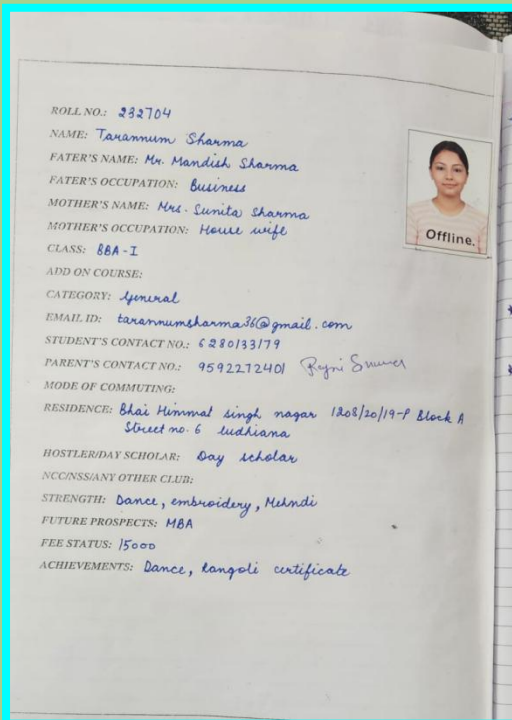 ROLL NO.: 232704
NAME: Tarannum Sharma
FATER'S NAME: Mr. Mandish Sharma
FATER'S OCCUPATION: Business
MOTHER'S NAME: Mrs. Sunita Sharma
MOTHER'S OCCUPATION: House wife
CLASS: BBA-I
ADD ON COURSE:
CATEGORY: General
EMAIL ID: tarannumsharma36@gmail.com
STUDENT'S CONTACT NO.: 6280133179
PARENT'S CONTACT NO.: 9592272401
MODE OF COMMUTING:
RESIDENCE: Bhai Himmat singh nagar 1208/20/19-P Block A
Street no. 6 ludhiana
HOSTLER/DAY SCHOLAR: Day scholar
NCC/NSS/ANY OTHER CLUB:
STRENGTH: Dance, embroidery, Mehndi
FUTURE PROSPECTS: MBA
FEE STATUS: 15000
ACHIEVEMENTS: Dance, Rangoli certificate
Offline.